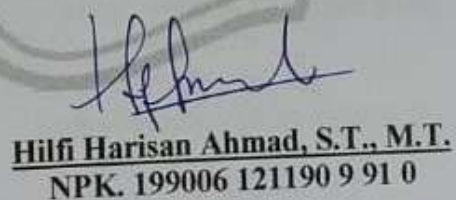 Hilfi Harisan Ahmad, S.T., M.T.
NPK. 199006 121190 9 91 0